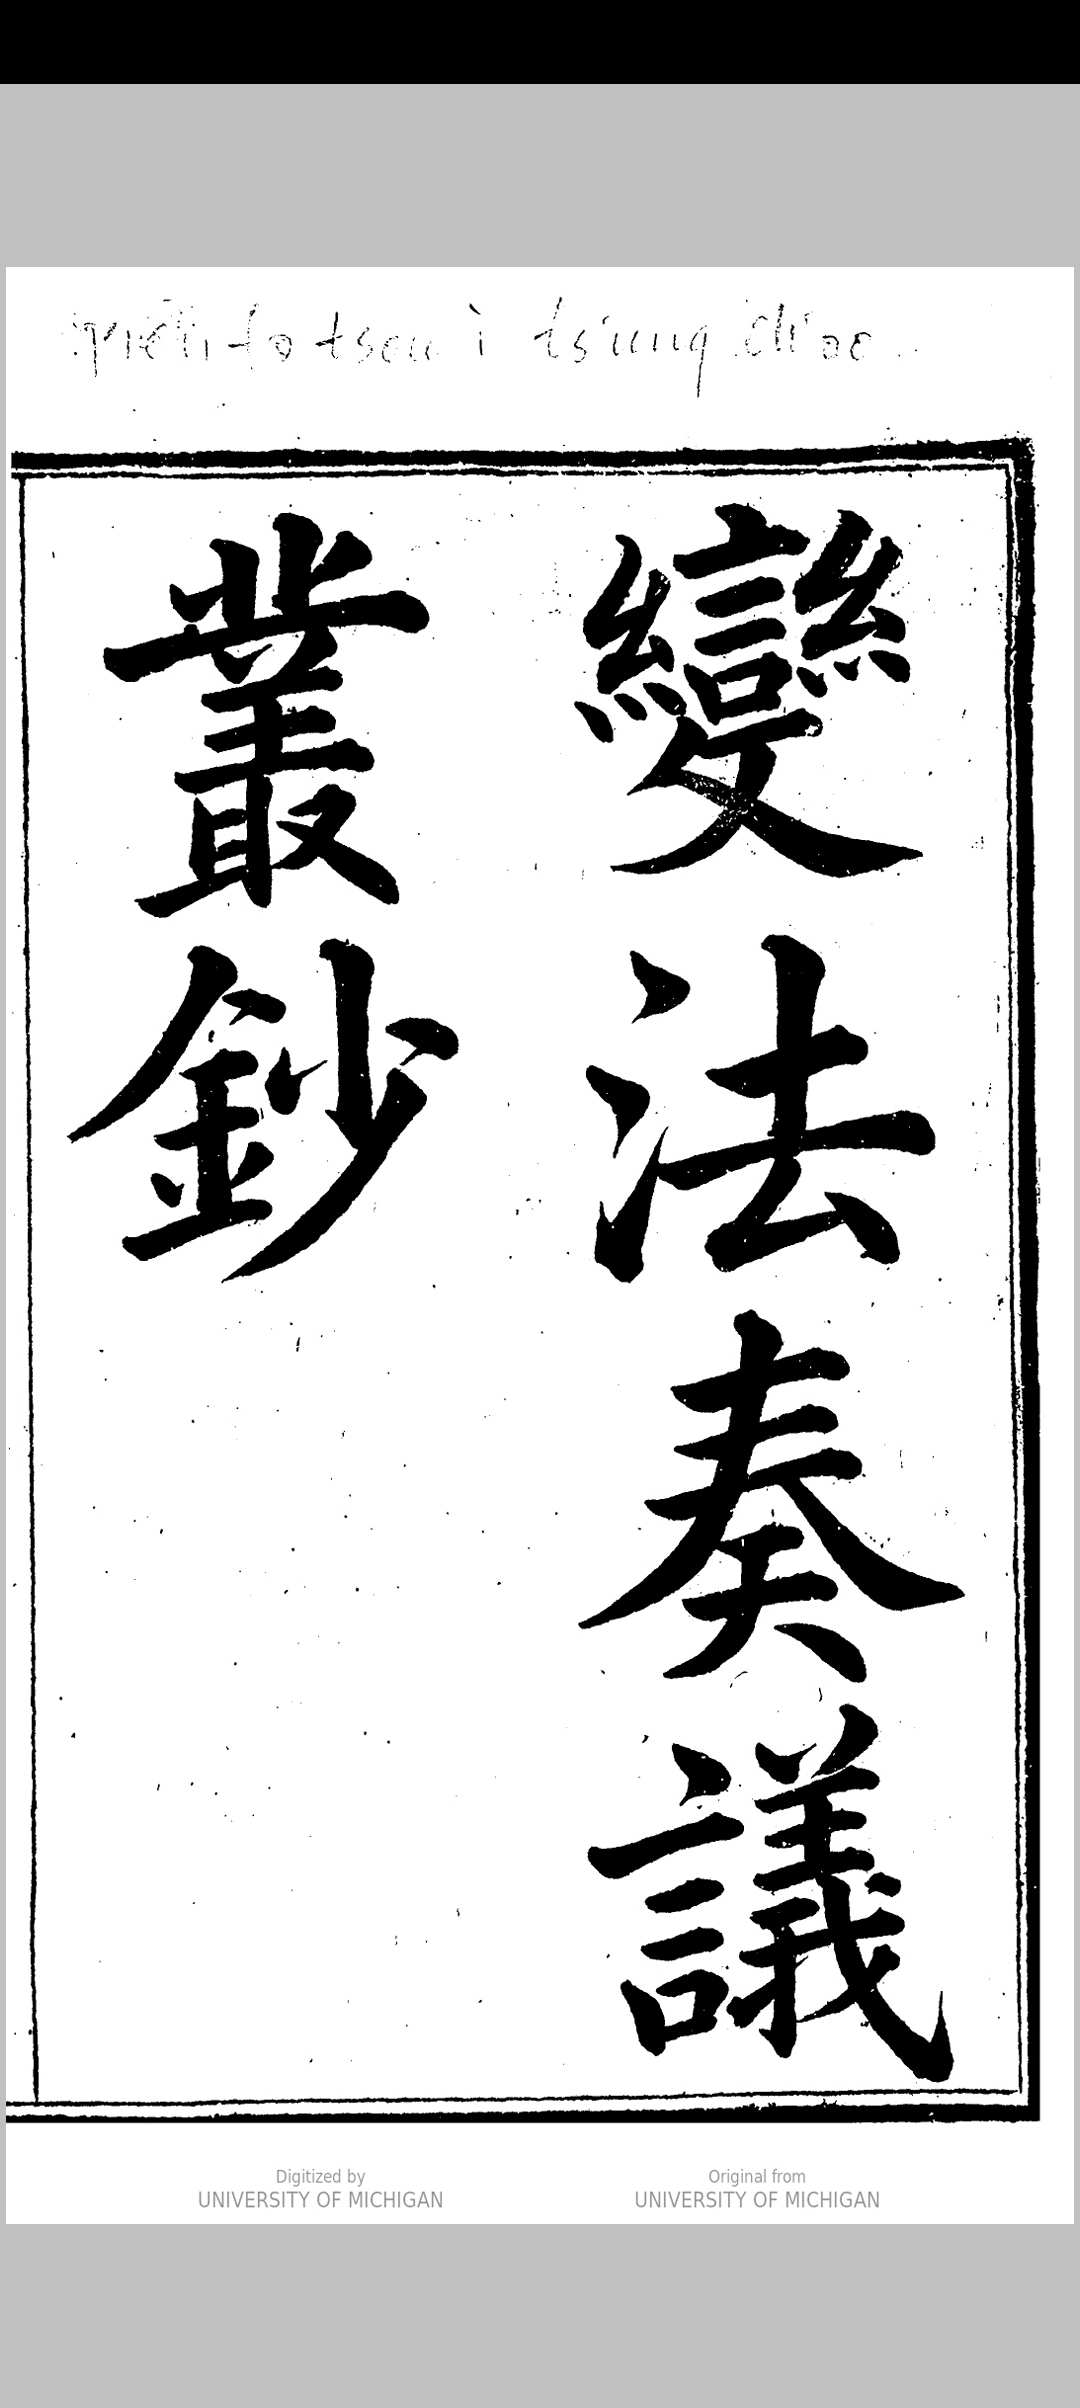 pien fa tsou i ts'ung ch'ao
變法奏議
叢鈔
Digitized by
UNIVERSITY OF MICHIGAN
Original from
UNIVERSITY OF MICHIGAN